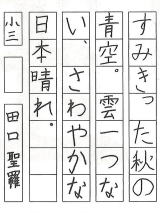 すみきった秋の
青空。雲一つな
い、さわやかな
日本晴れ。
小三
田口聖羅